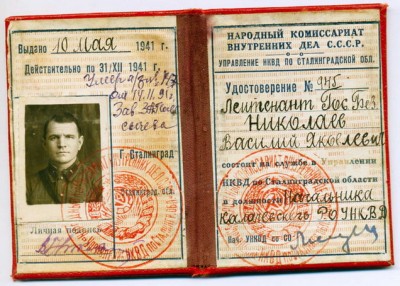 Выдано 10 Мая 1941 г.
Действительно по 31/XII 1941 г.
Зав
Г. Сталинград
Личная подпись
НАРОДНЫЙ КОМИССАРИАТ
ВНУТРЕННИХ ДЕЛ С.С.С.Р.
УПРАВЛЕНИЕ НКВД ПО СТАЛИНГРАДСКОЙ ОБЛ.
Удостоверение №
Лейтенант Гос Без
Николаев
Василий Яковлевич
состоит на службе в Управлении
НКВД по Сталинградской области
в должности Начальника
РО УНКВД
Нач. УНКВД по СО